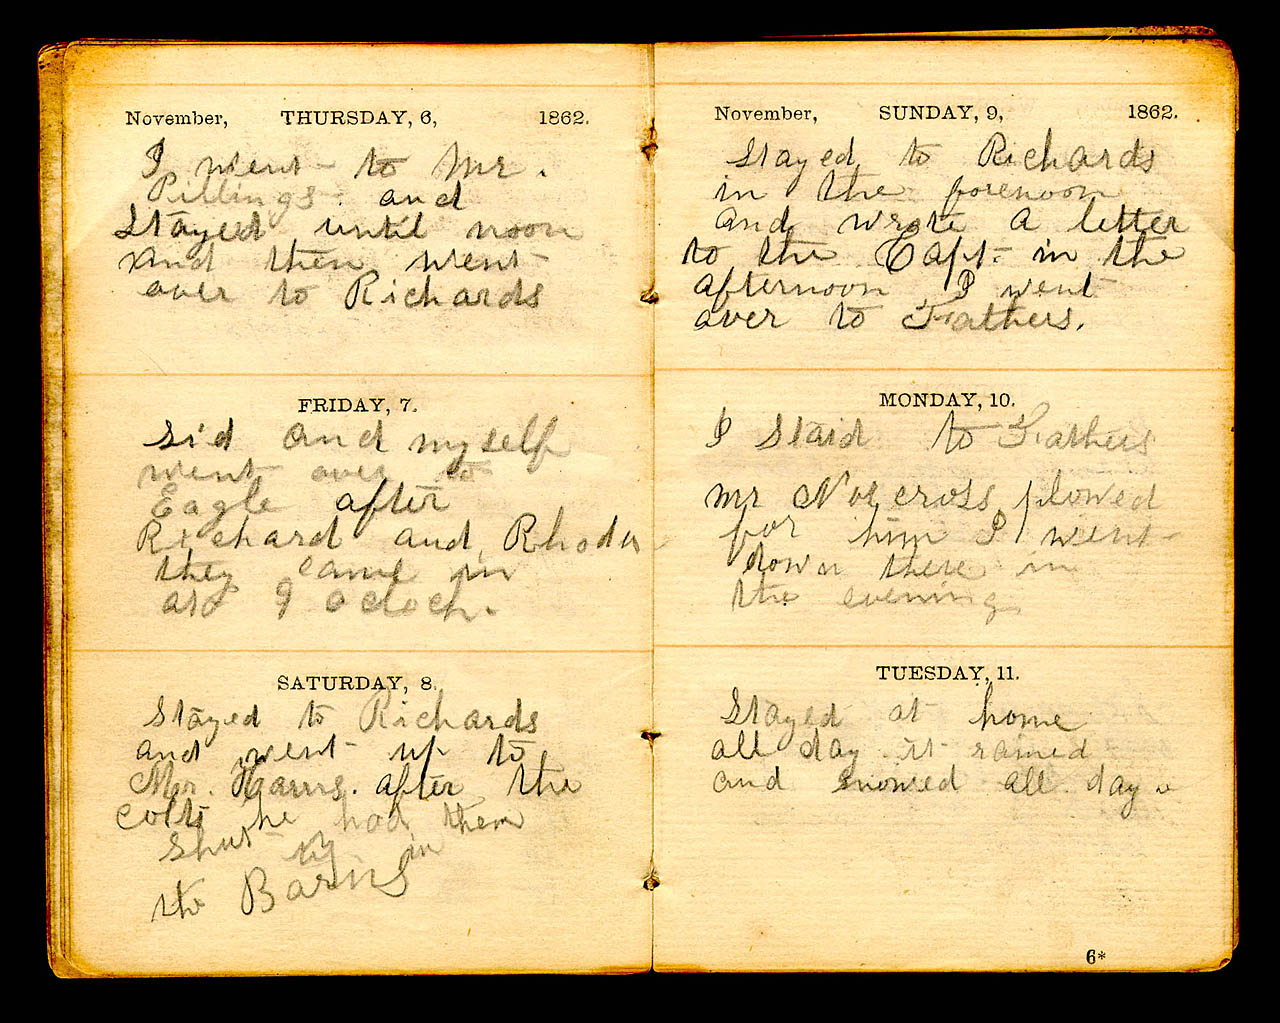 November, THURSDAY, 6, 1862.
I went to Mr.
Pillings and
Stayed until noon
and then went
over to Richards
FRIDAY, 7.
Sid and myself
went over to
Eagle after
Richard and Rhoda
they came in
at 9 oclock.
SATURDAY, 8.
Stayed to Richards
and went up to
Mr. after the
colts he had them
Shut up in
the Barns
November, SUNDAY, 9, 1862.
Stayed to Richards
in the forenoon
and wrote a letter
to the Capt. in the
afternoon I went
over to Fathers.
MONDAY, 10.
I Staid to Fathers
Mr Norcross plowed
for him I went
down there in
the evening
TUESDAY, 11.
Stayed at home
all day it rained
and snowed all day
6*